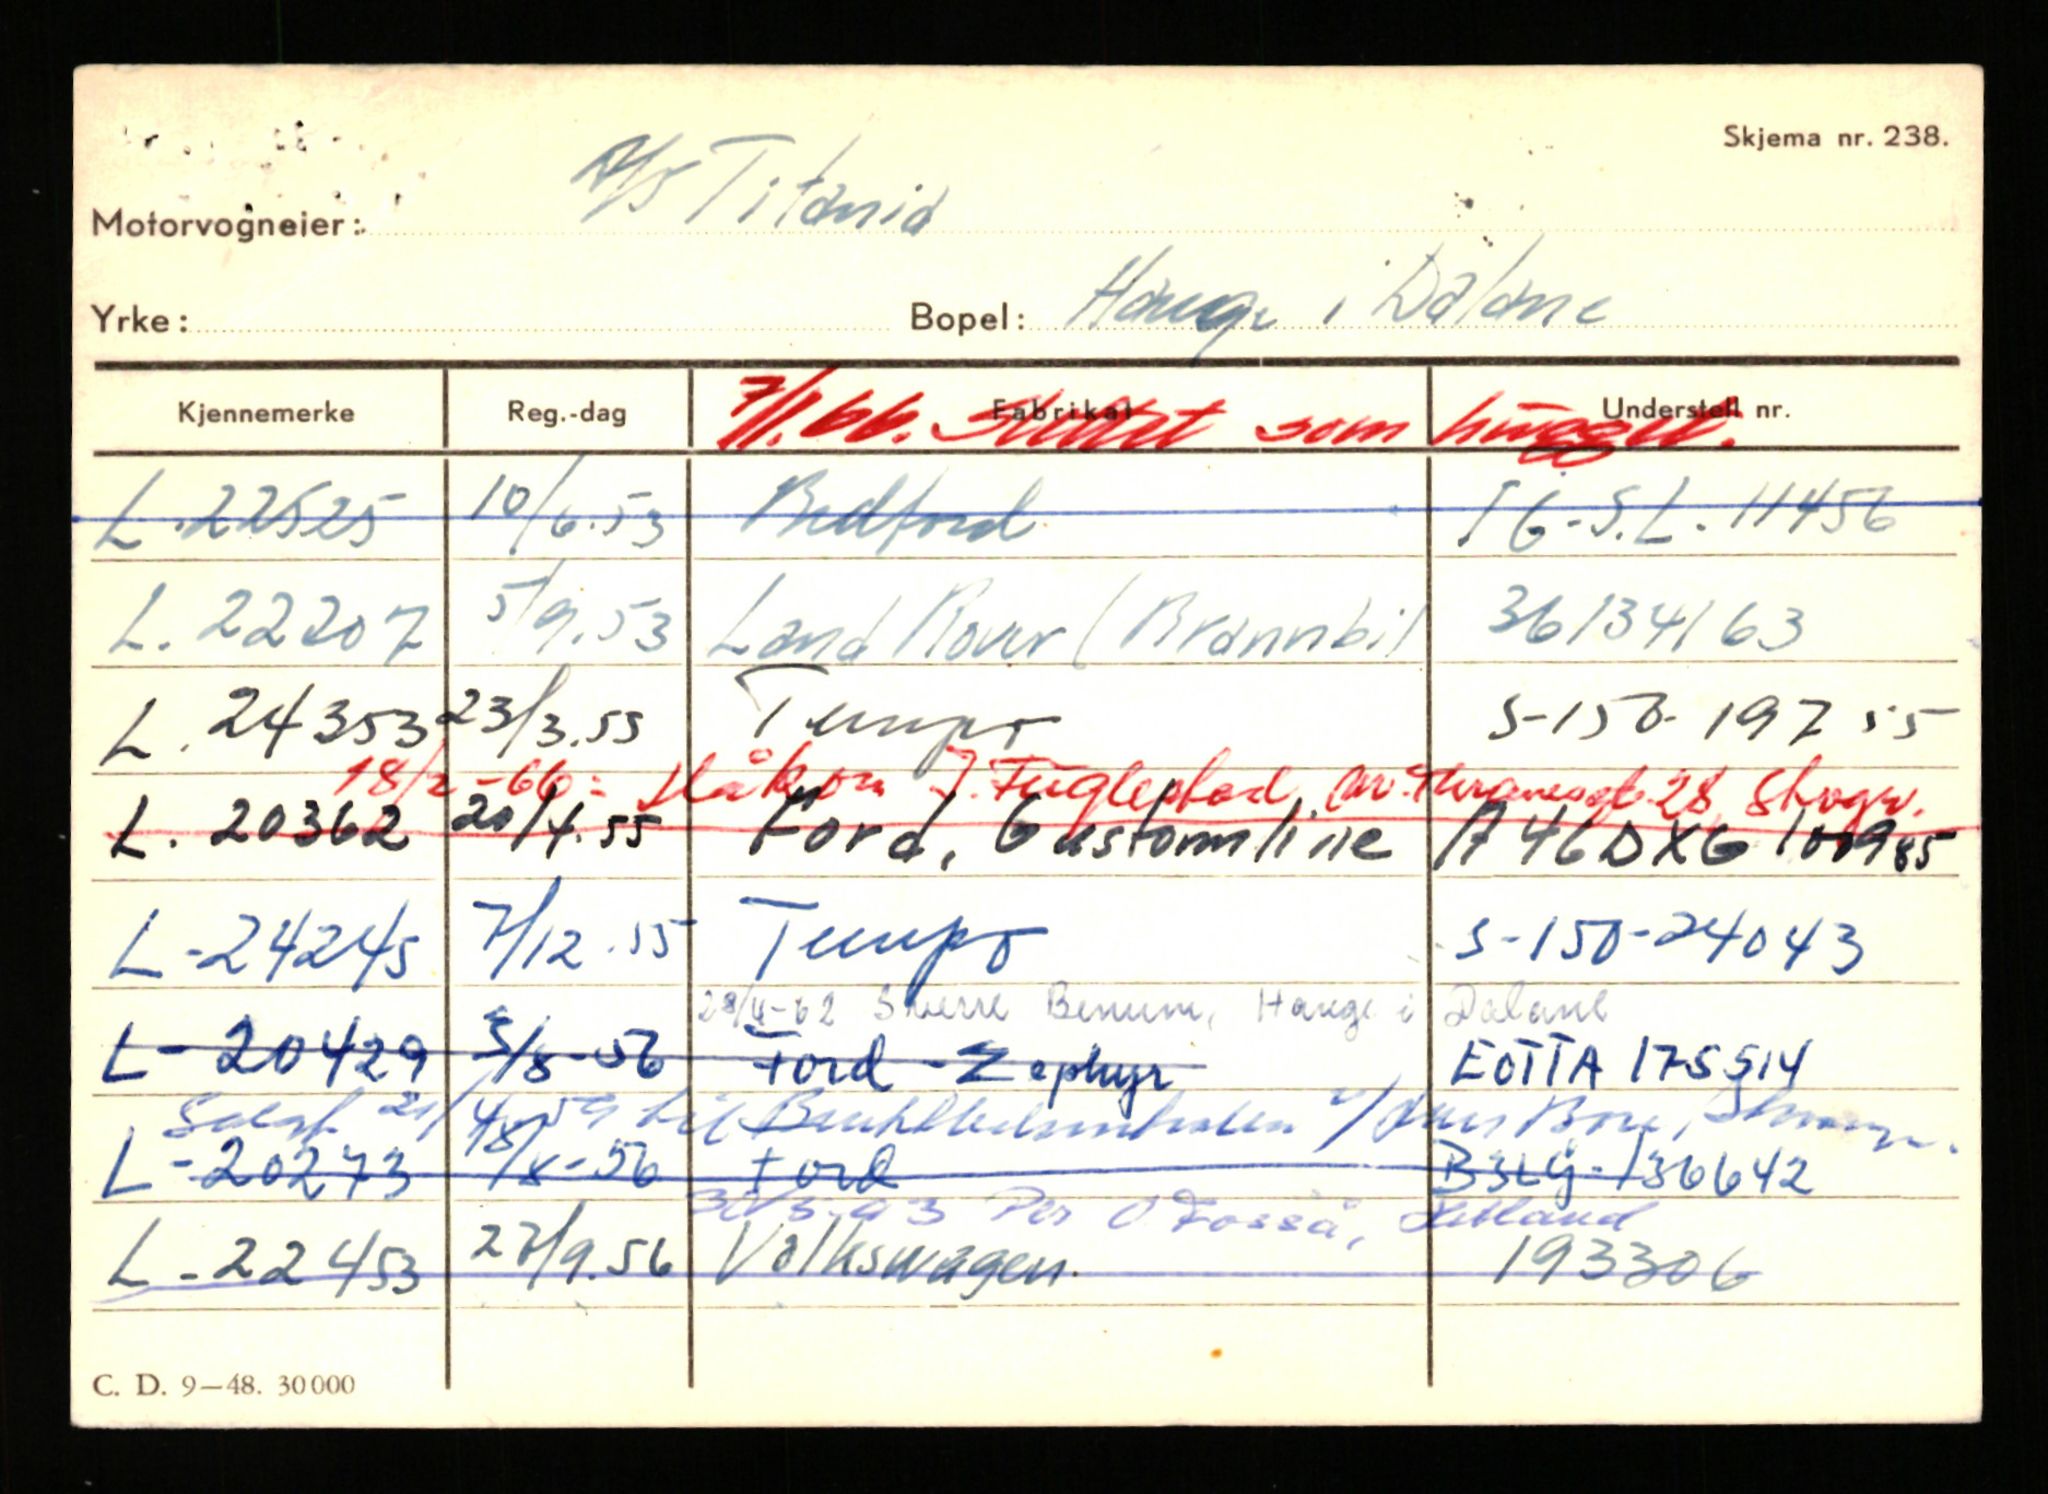 Skjema nr. 238.
Motorvogneier: A/S Titania
Yrke: Bopel: Hauge i Dalane
Kjennemerke Reg.-dag Fabrikat Understell nr.
7/1.66. Slettet som hugget.
L.22525 10/6.53 Bedford I G-S.L. 11456
L. 22207 5/9.53 Land Rover (Brannbil 36134163
L. 24353 23/3.55 Tempo S-150-19755
18/2-66: Håkon J. Fuglestad, 28,
L. 20362 20/4.55 Ford, Customline A46DXG 100985
L-24245 7/12.55 Tempo S-150-24043
28/4-62 Sverre Benum, Hauge i Dalane
L-20429 5/5-56 Ford-Zephyr EOTTA 175514
Solgt 21/4 59 til
L-20273 18/8-56 Ford B3LG-136642
30/5-63 Per O Fosså, Hetland
L-22453 27/9.56 Volkswagen. 193306
C. D. 9—48. 30000